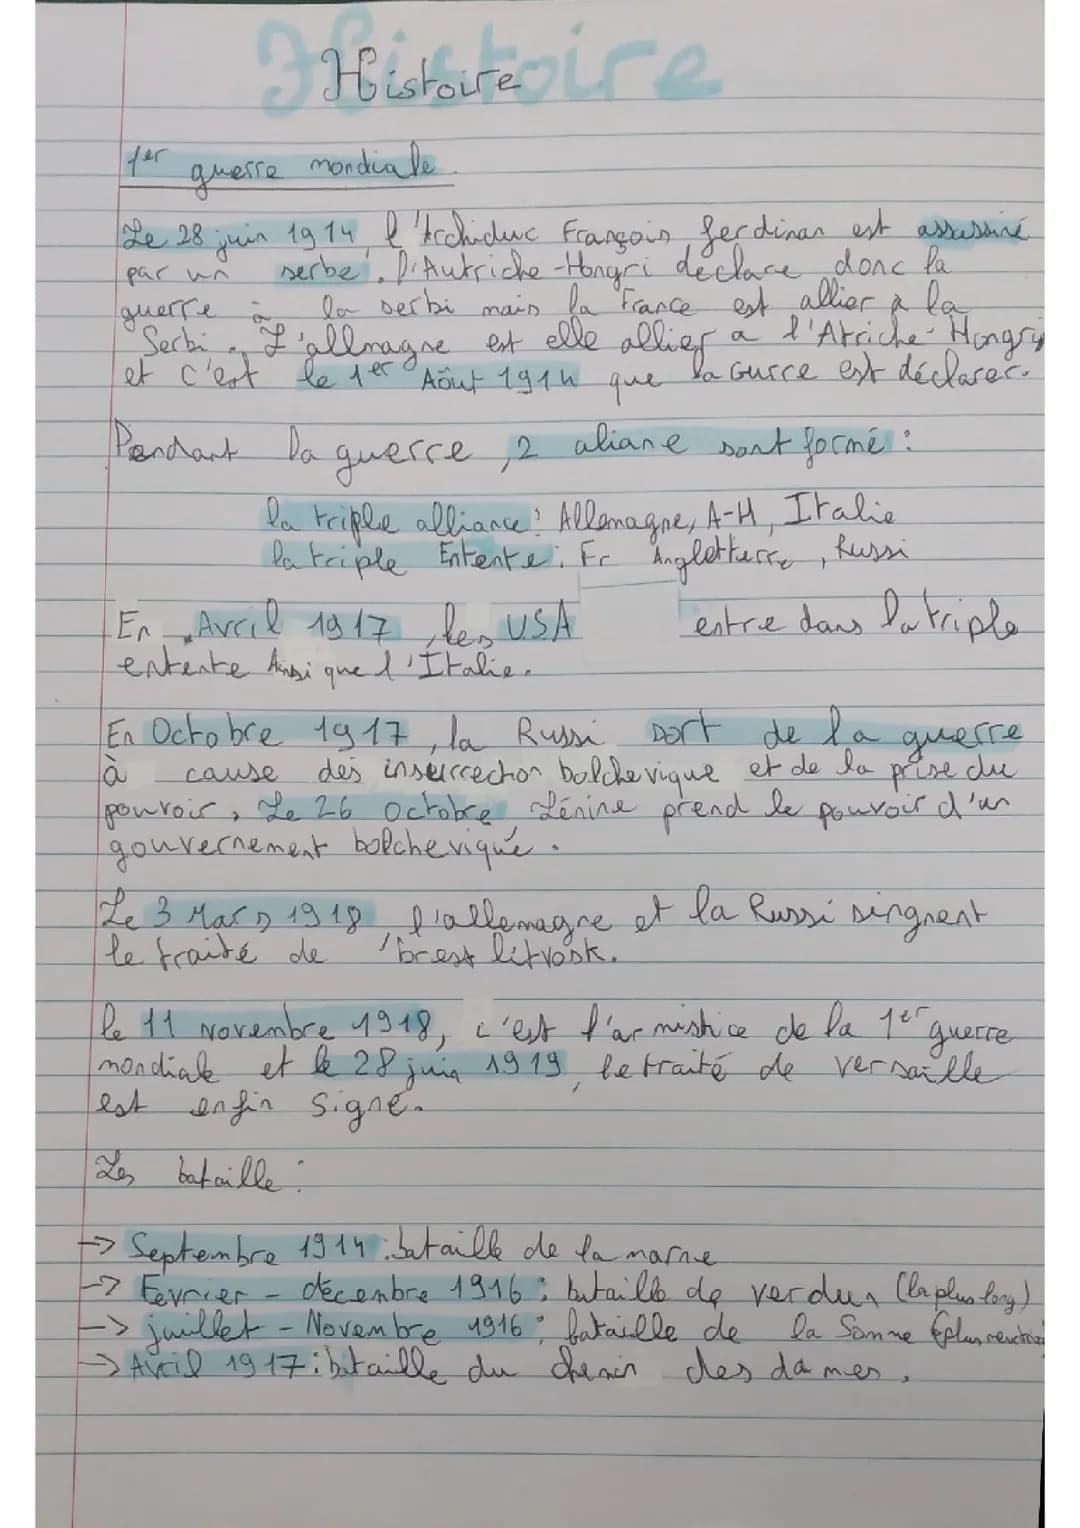 Histoire
Histoire
1er guerre mondiale
Le 28 juin 1914, l'Archiduc François ferdinan est assassiné
par un serbe. l'Autriche-Hongri déclare donc la
guerre à la serbi mais la France est allier à la
Serbi. L'allmagne est elle allier a l'Atriche-Hongry
et c'est le 1er Août 1914 que la Gurre est déclarer.
Pendant la guerre, 2 aliane sont formé :
la triple alliance: Allemagne, A-H, Italie
la triple Entente: Fr Angletterre, Russi
En Avril 1917, les USA entre dans la triple
entente Ainsi que l'Italie.
En Octobre 1917, la Russi sort de la guerre
à cause des insurrection bolchevique et de la prise du
pouvoir, Le 26 octobre Lénine prend le pouvoir d'un
gouvernement bolchevique.
Le 3 Mars 1918, l'allemagne et la Russi singnent
le traité de brest litvosk.
le 11 novembre 1918, c'est l'armistice de la 1er guerre
mondiale et le 28 juin 1919, le traité de versaille
est enfin signé.
Les bataille :
-> Septembre 1914 : bataille de la marne
-> Fevrier - décembre 1916 : bataille de verdun (la plus long)
-> juillet - Novembre 1916 : bataille de la Somme (plus
-> Avril 1917 : bataille du chemin des dames.